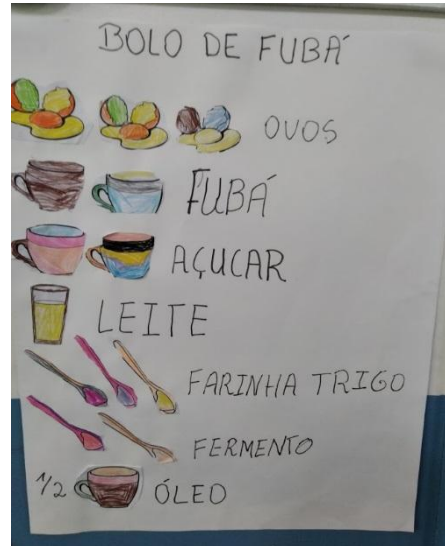 BOLO DE FUBÁ
OVOS
FUBÁ
AÇUCAR
LEITE
FARINHA TRIGO
FERMENTO
1/2 ÓLEO